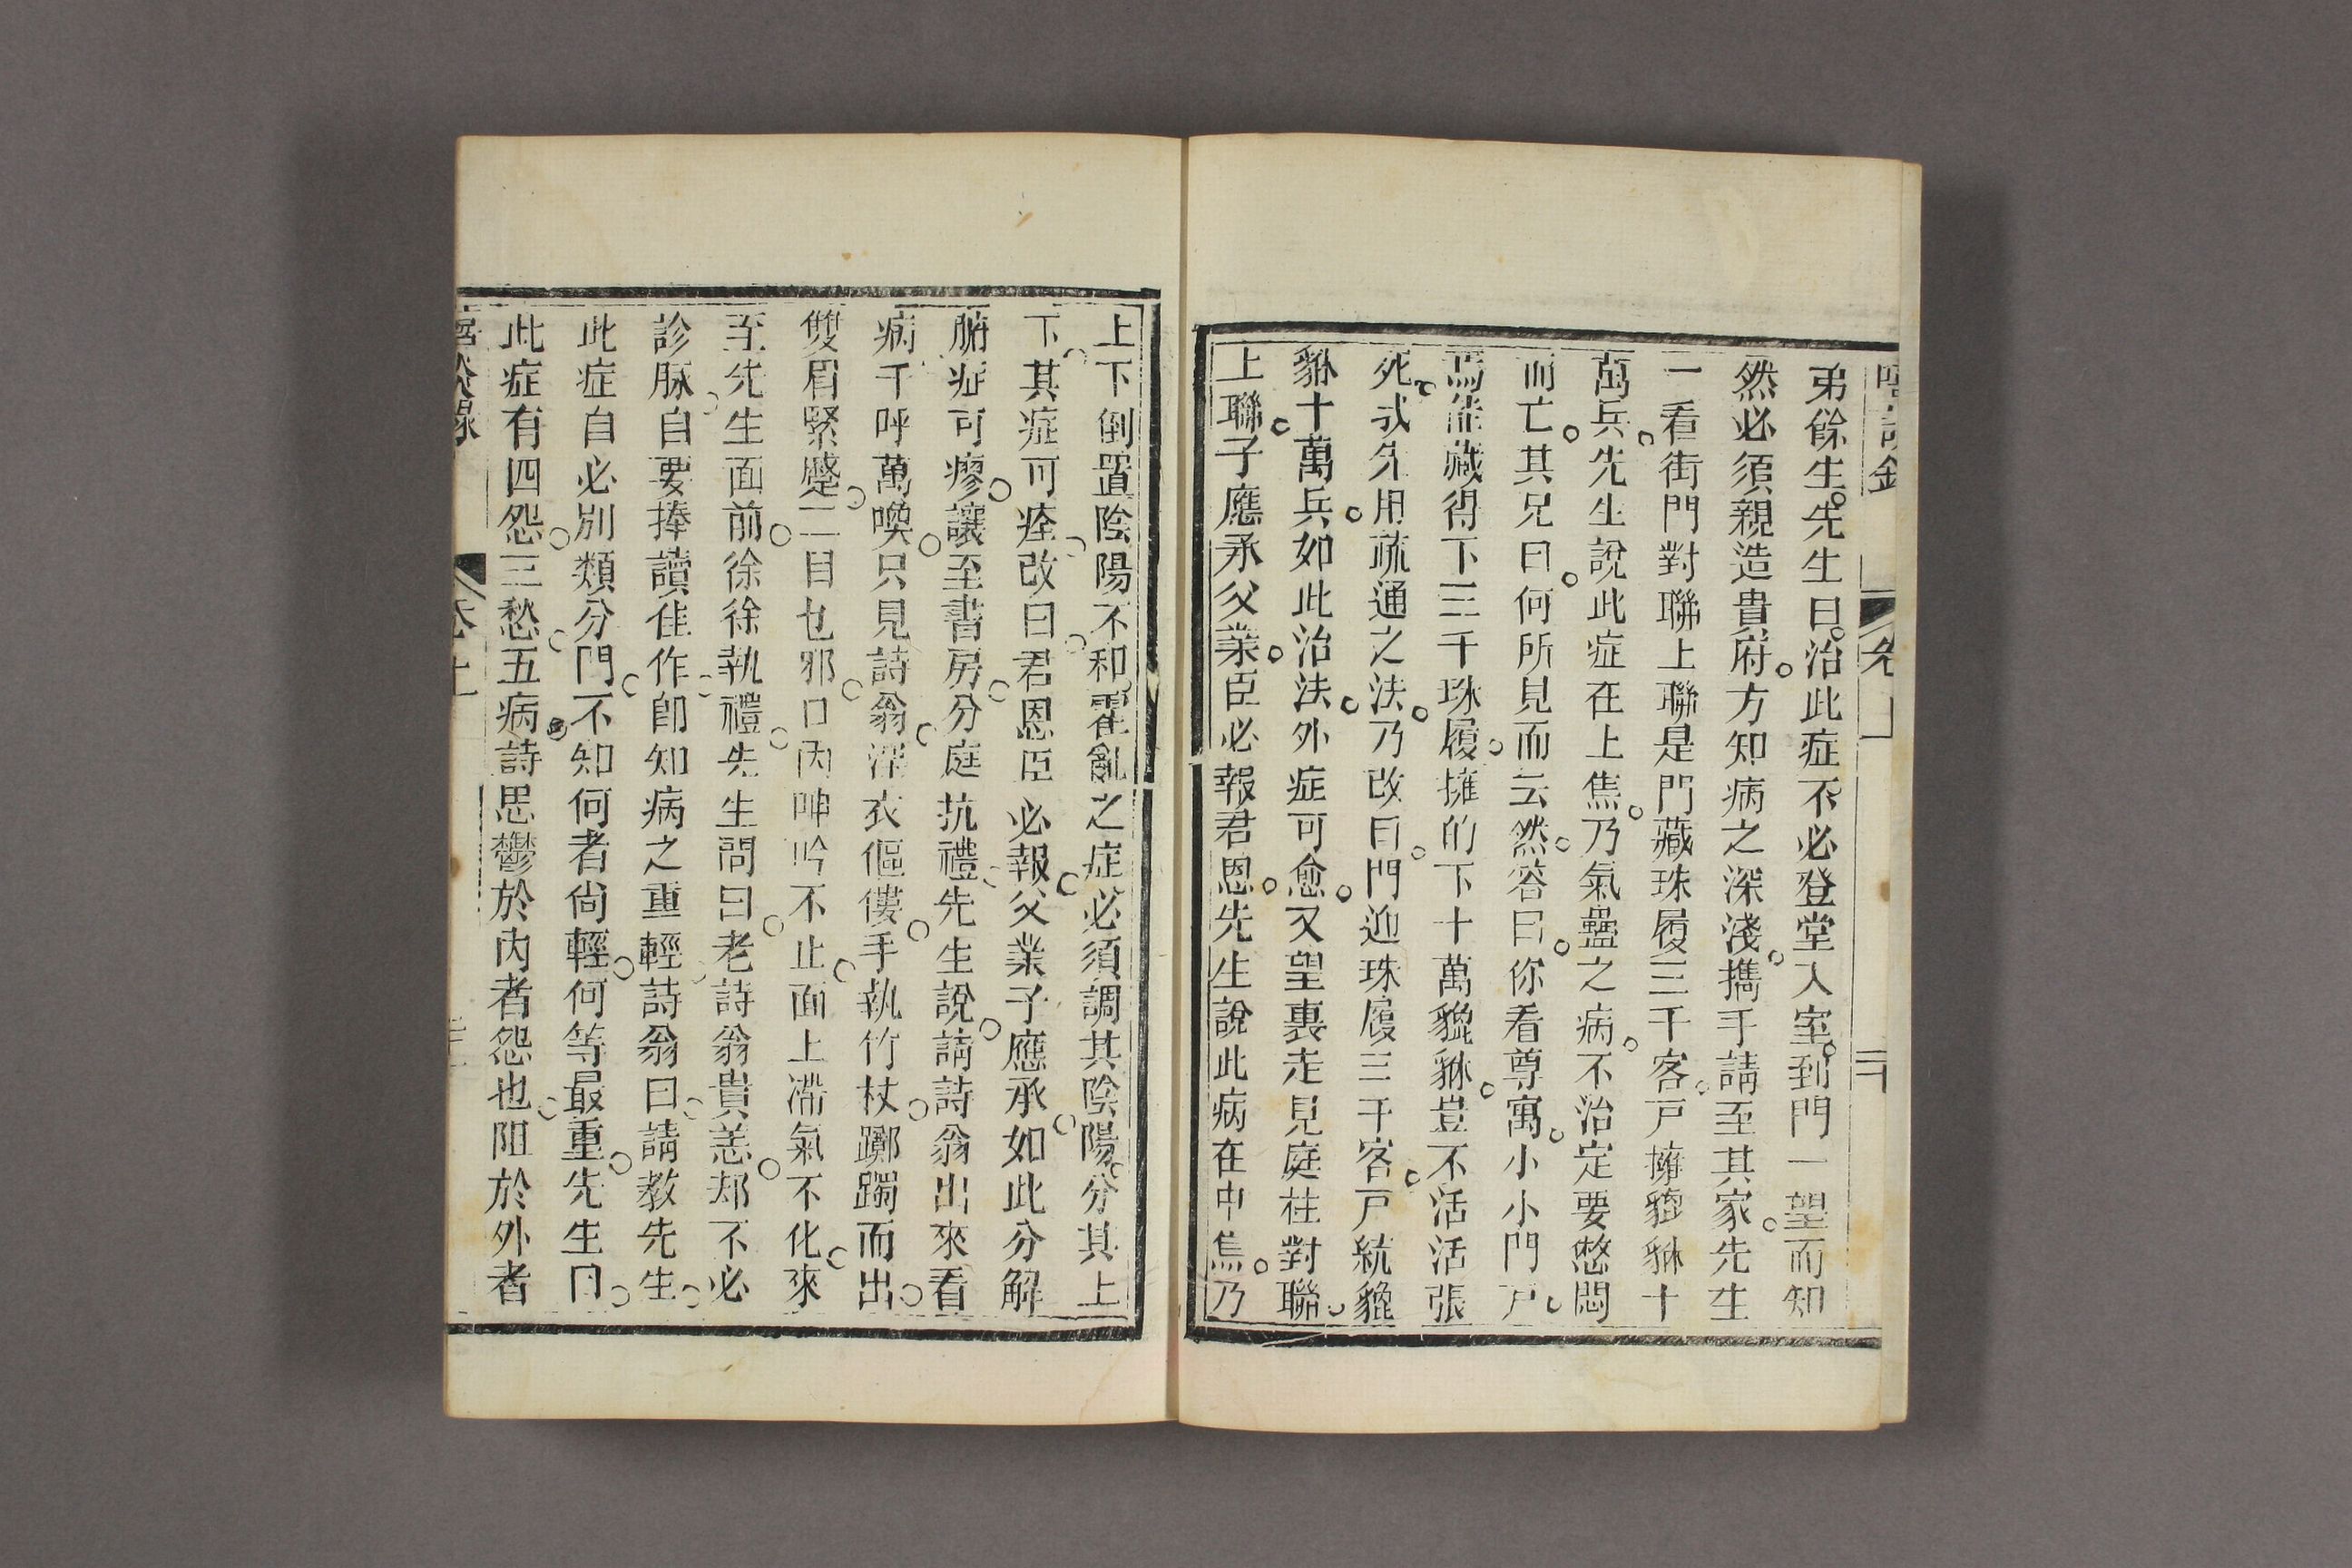 弟餘生。先生曰。治此症不必登堂入室。到門一望而知
然必須親造貴府。方知病之深淺。擕手請至其家。先生
一看街門對聯上聯是門藏珠履三千客。戸擁貔貅十
萬兵。先生說此症在上焦。乃氣蠱之病。不治定要憋悶
而亡。其兄曰。何所見而云然。答曰。你看尊寓。小小門戸。
焉能藏得下三千珠履。擁的下十萬貔貅。豈不活活張
死。我先用疏通之法。乃改曰。門迎珠履三千客。戸統貔
貅十萬兵。如此治法。外症可愈。又望裏走見庭柱對聯。
上聯。子應承父業。臣必報君恩。先生說此病在中焦。乃
上下倒置陰陽不和。霍亂之症。必須調其陰陽。分其上
下。其症可痊。改曰。君恩臣必報。父業子應承。如此分解
腑症可瘳。讓至書房。分庭抗禮。先生說。請詩翁出來看
病。千呼萬喚。只見詩翁。深衣傴僂。手執竹杖。躑躅而出。
雙眉緊蹙。二目乜邪。口內呻吟不止。面上滯氣不化。來
至先生面前。徐徐執禮。先生問曰。老詩翁貴恙。却不必
診脉。自要捧讀佳作。卽知病之重輕。詩翁曰。請教先生。
此症自必別類分門。不知何者尙輕。何等最重。先生曰。
此症有四怨。三愁。五病。詩思鬱於內者怨也。阻於外者
卷上